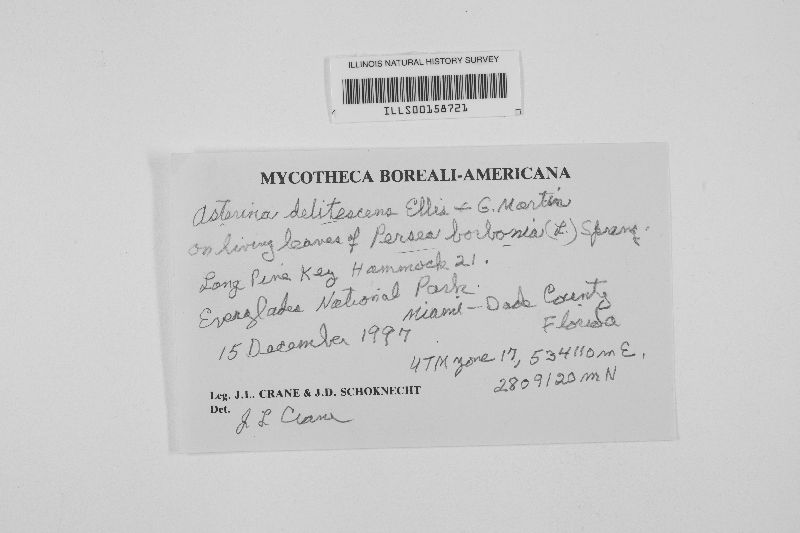 ILLINOIS NATURAL HISTORY SURVEY
ILLS00158721
MYCOTHECA BOREALI-AMERICANA
Asterina delitescens Ellis & G. Martin
on living leaves of Persea borbonia (L.) Spreng.
Long Pine Key Hammock 21.
Everglades National Park.
Miami-Dade County
Florida
15 December 1997
UTM zone 17, 534110 m E,
2809120 m N
Leg. J.L. CRANE & J.D. SCHOKNECHT
Det.
J L Crane